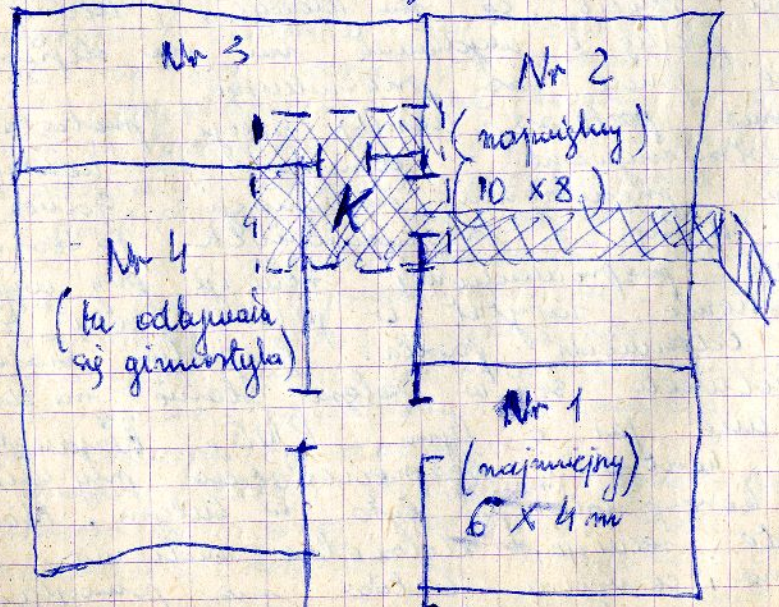 Nr 3
Nr 2
(największy)
(10 x 8)
K
Nr 4
(tu odbywała
się gimnastyka)
Nr 1
(najmniejszy)
6 x 4 m